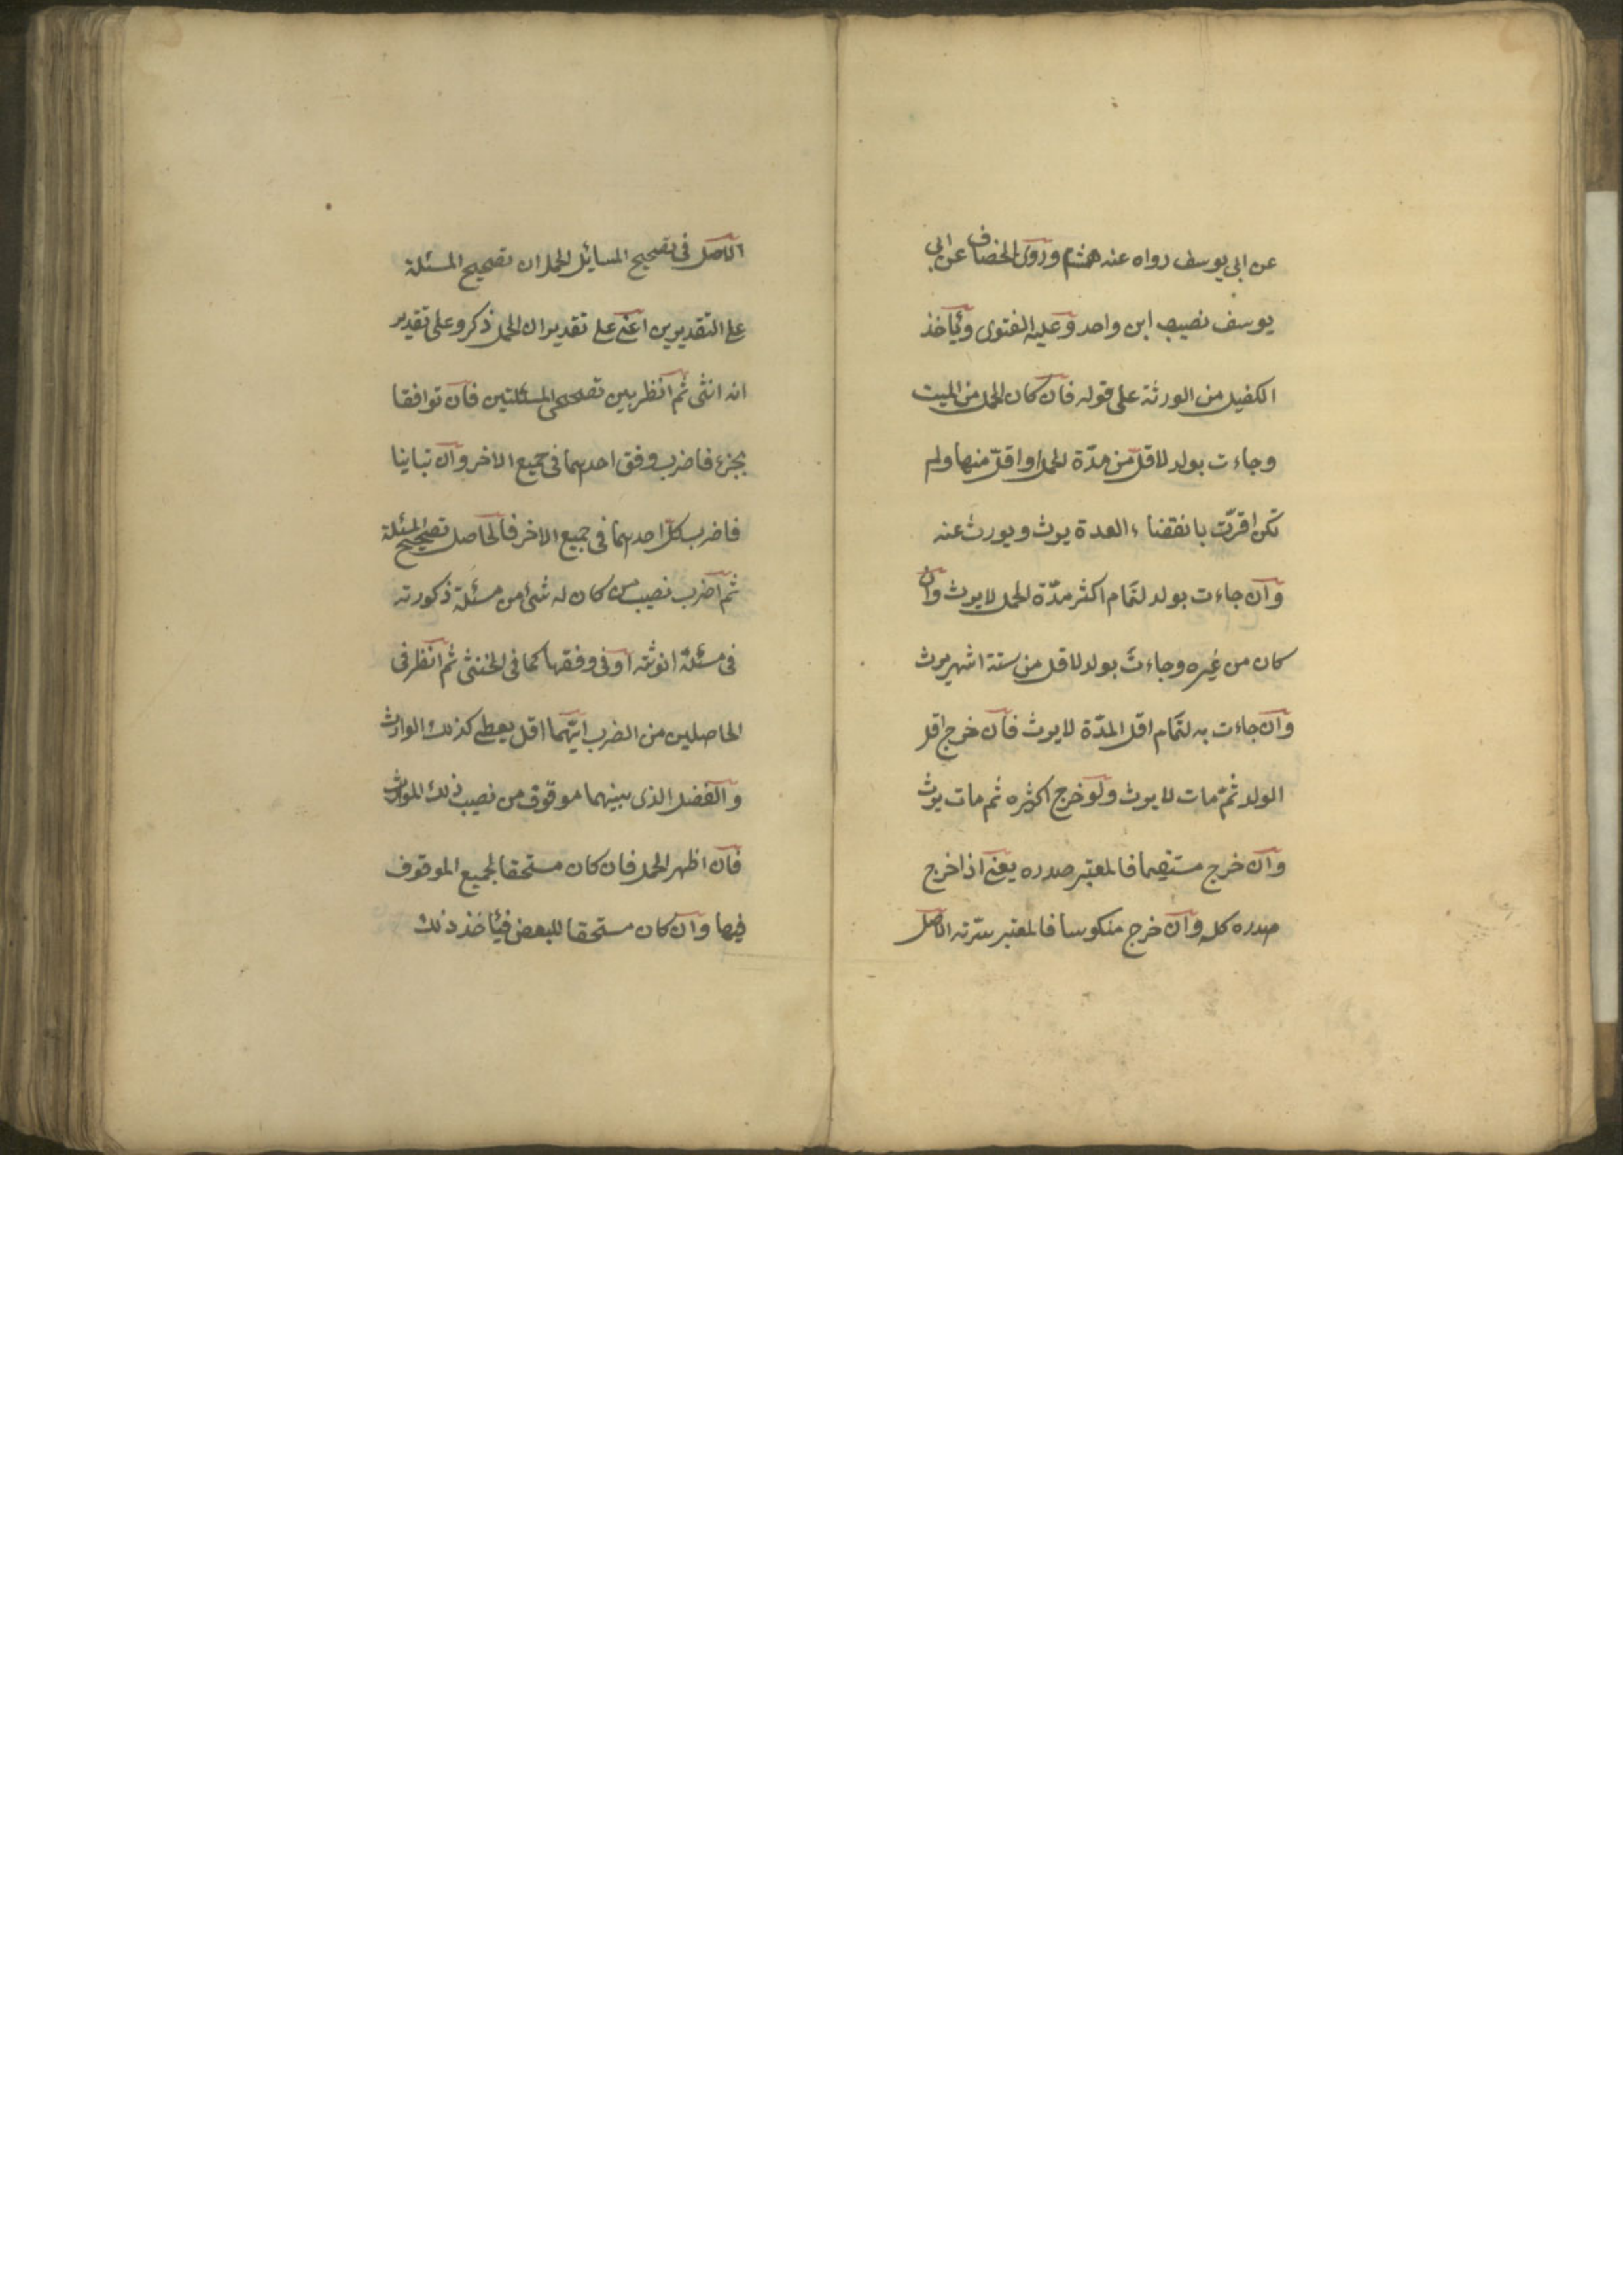 عن ابى يوسف رواه عنه هشام وروى الخصاف عن ابى
يوسف نصيب ابن واحد وعليه الفتوى ويأخذ
الكفيل من الورثة على قوله فان كان الحمل من الميت
وجاءت بولد لاقل من مدّة الحمل او اقلّ منها ولم
تكن اقرّت بانقضاء العدة يرث ويورث عنه
وان جاءت بولد لتمام اكثر مدّة الحمل لا يرث وان
كان من غيره وجاءت بولد لاقل من ستة اشهر يرث
وان جاءت به لتمام اقل المدّة لا يرث فان خرج اقل
الولد ثمّ مات لا يرث ولو خرج اكثره ثم مات يرث
وان خرج مستقيما فالمعتبر صدره يعنى اذا خرج
صدره كله وان خرج منكوسا فالمعتبر سرّته الاصل
الاصل فى تصحيح المسائل الحمل ان تصحيح المسئلة
على التقديرين اعنى على تقدير ان الحمل ذكر وعلى تقدير
انه انثى ثم انظر بين تصحيحى المسئلتين فان توافقا
بجزء فاضرب وفق احدهما فى جميع الاخر وان تباينا
فاضرب كلّ احدهما فى جميع الاخر فالحاصل تصحيح المسئلة
ثم اضرب نصيب من كان له شئ من مسئلة ذكورته
فى مسئلة انوثته او فى وفقها كما فى الخنثى ثم انظر فى
الحاصلين من الضرب ايّهما اقل يعطى كذلك الوارث
والفضل الذى بينهما موقوف من نصيب ذلك الوارث
فان اظهر الحمل فان كان مستحقا لجميع الموقوف
فيها وان كان مستحقا للبعض فيأخذ ذلك